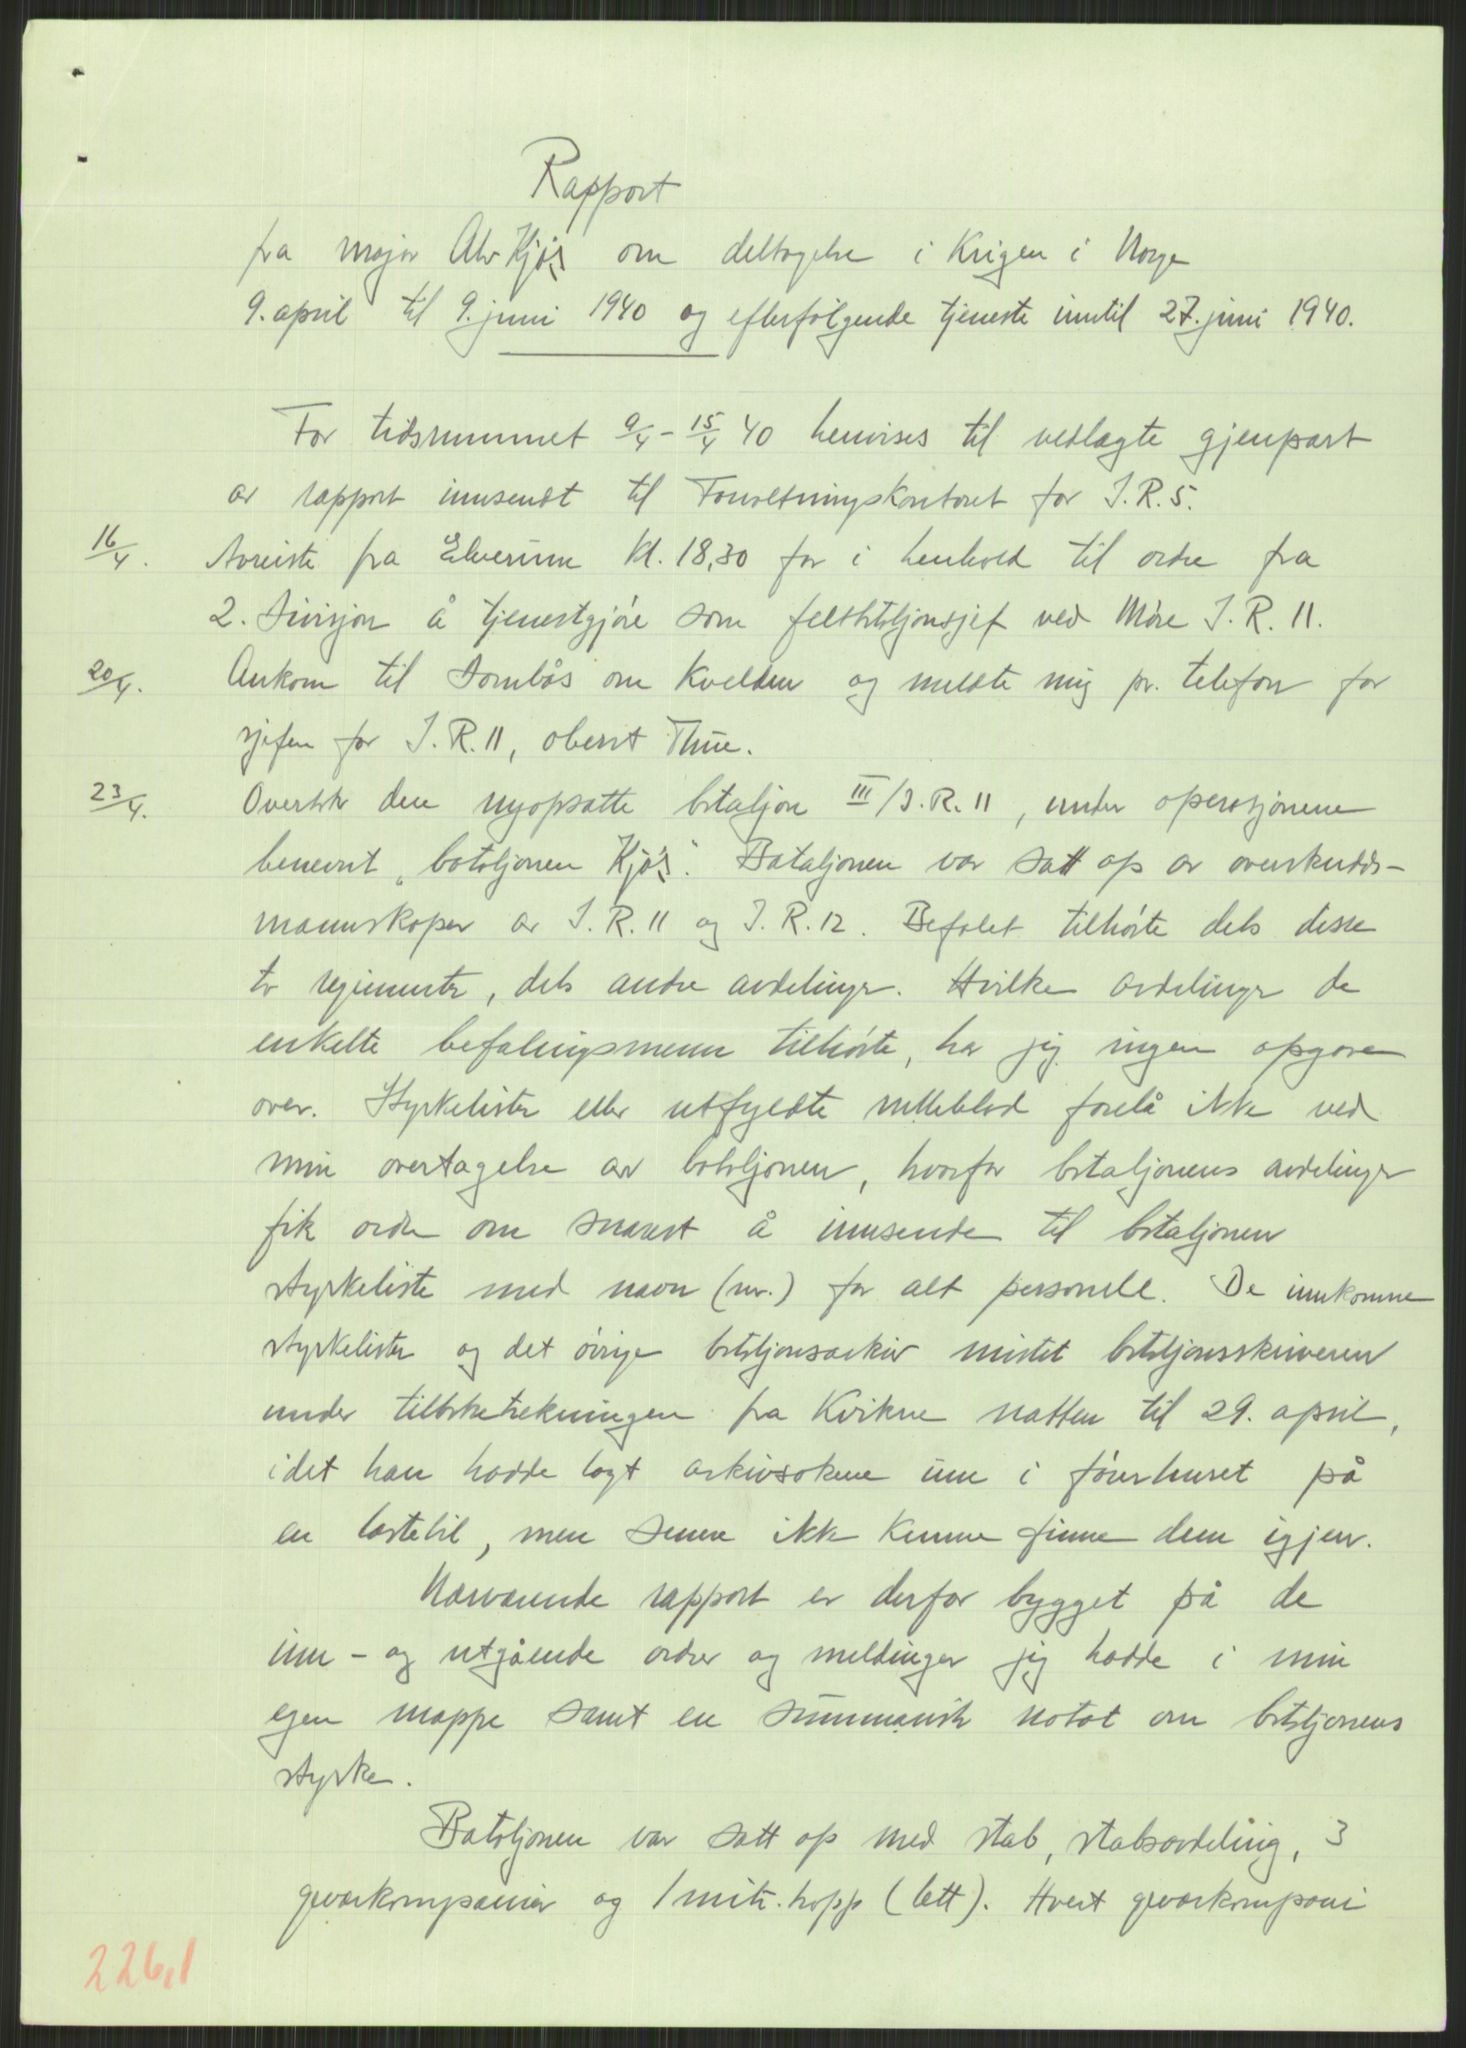 Rapport
fra major Alv Kjøs om deltagelse i Krigen i Norge
9. april til 9. juni 1940 og efterfølgende tjeneste inntil 27. juni 1940.
For tidsrummet 9/4 - 15/4 40 henvises til vedlagte gjenpart
av rapport innsendt til Forvaltningskontoret for I.R.5.
16/4. Avreiste fra Elverum kl. 18,30 for i henhold til ordre fra
2. Divisjon å tjenestgjøre som feltbtljonssjef ved Møre I.R. 11.
20/4. Ankom til Dombås om kvelden og meldte mig pr. telefon for
sjefen for I.R. 11, oberst Thue.
23/4. Overtok den nyopsatte bataljon III/I.R. 11, under operasjonene
benevnt „bataljonen Kjøs". Bataljonen var satt op av overskudds-
mannskaper av I.R. 11 og I.R. 12. Befalet tilhørte dels disse
to regimenter, dels andre avdelinger. Hvilke avdelinger de
enkelte befalingsmenn tilhørte, har jeg ingen opgave
over. Styrkelister eller utfyldte rulleblad forelå ikke ved
min overtagelse av bataljonen, hvorfor bataljonens avdelinger
fik ordre om snarest å innsende til bataljonen
styrkeliste med navn (nr.) for alt personell. De innkomne
styrkelister og det øvrige bataljonsarkiv mistet bataljonsskriveren
under tilbaketrekningen fra Kvikne natten til 29. april,
idet han hadde lagt arkivsakene inn i førerhuset på
en lastebil, men senere ikke kunne finne dem igjen.
Nærværende rapport er derfor bygget på de
inn- og utgående ordrer og meldinger jeg hadde i min
egen mappe samt en summarisk notat om bataljonens
styrke.
Bataljonen var satt op med stab, stabsavdeling, 3
geværkompanier og 1 mitr. kopp (lett). Hvert geværkompani
226,1